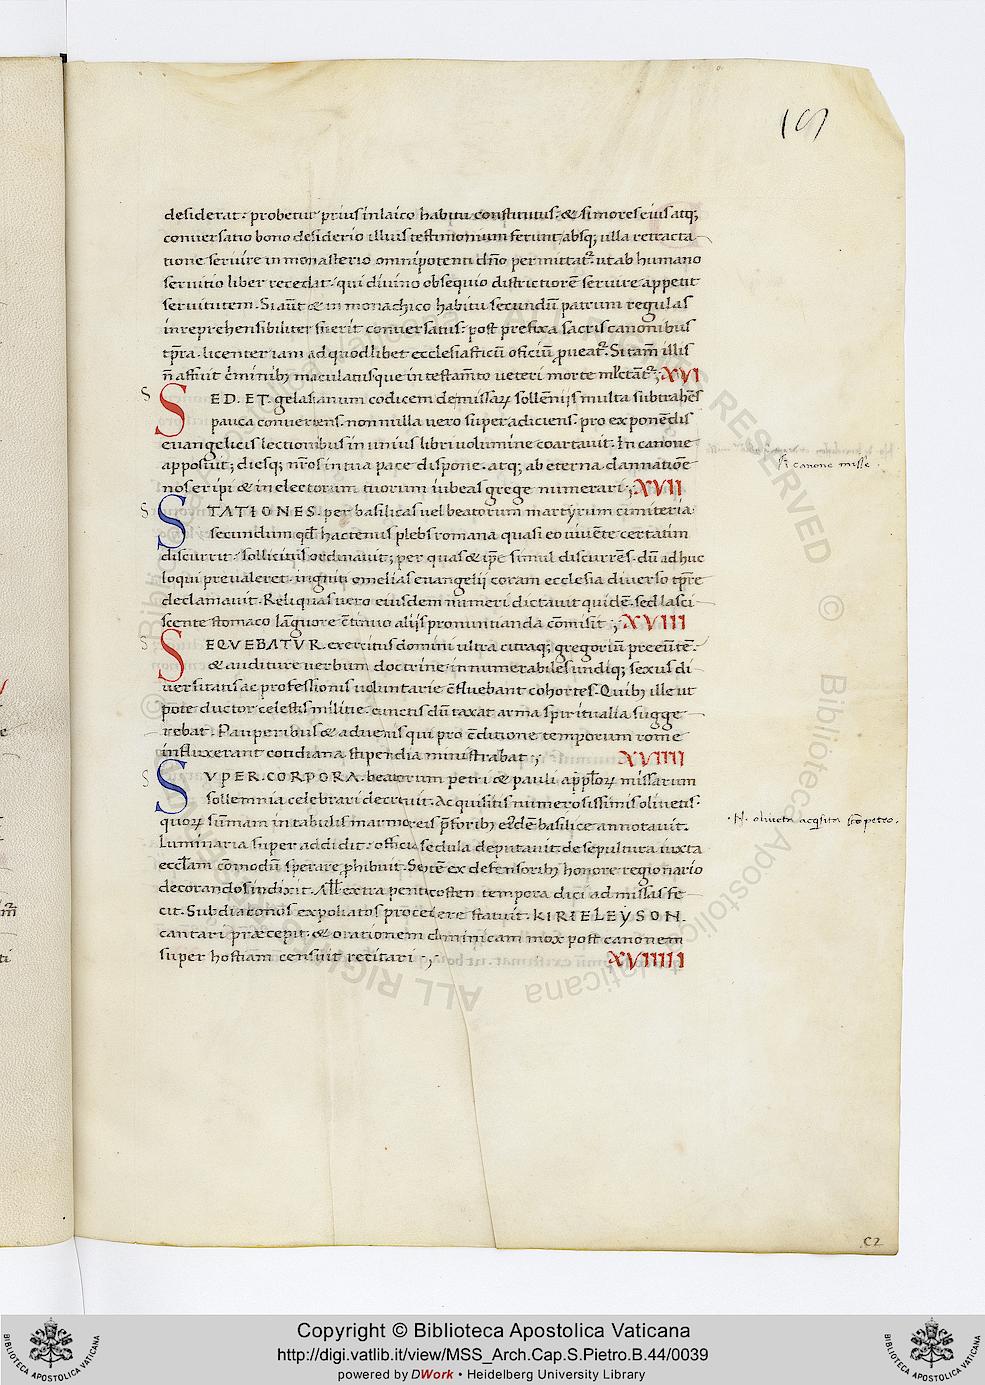 19
desiderat· probetur prius in laico habitu constitutus· & si mores eius atq;
conversatio bono desiderio illius testimonium ferunt, absq; ulla retracta
tione servire in monasterio omnipotenti dño permittat᷑· ut ab humano
servitio liber recedat· qui divino obsequio districtiorē servire appetit
servitutem. Si aūt & in monachico habitu secundū patrum regulas
inreprehensibiliter fuerit conversatus· post prefixa sacris canonibus
tp̄ra· licenter iam ad quodlibet ecclesiasticū oficiū ꝓveat᷑. Si tam̄ illis
n̄ affuit c̄minibȝ maculatus que in testam̄to veteri morte ml̄ctant᷑; XVI
S SED. ET. gelasianum codicem de missarꝝ sollēniis multa subtrahēs
pauca convertens· non nulla vero super adiciens· pro exponēdis
evangelicis lectionibus in unius libri volumine coartavit. In canone
apposuit; diesq; nr̄os in tua pace dispone· atq; ab eterna damnatiōe
nos eripi & in electorum tuorum iubeas grege numerari; XVII
S STATIONES. per basilicas vel beatorum martyrum cimiteria·
secundum qd̄ hactenus plebs romana quasi eo vivēte certatim
discurrit· sollicitus ordinavit; per quas & ip̄e simul discurrēs· dū adhuc
loqui prevaleret· inginti omelias evangelii coram ecclesia diverso tp̄re
declamavit. Reliquas vero eiusdem numeri dictavit quidē· sed lasci
scente stomaco lāguore c̄tinuo aliis pronuntianda cōmisit; XVIII
S SEQVEBATVR. exercitus domini ultra citraq; gregoriū preeūtē·
& auditure verbum doctrine innumerabiles undiq; sexus di
versitatis ac professionis voluntarie c̄fluebant cohortes. Quibȝ ille ut
pote ductor celestis militie· cunctis dū taxat arma spiritualia sugge
rebat. Pauperibus & advenis qui pro c̄ditione temporum rome
influxerant cotidiana stipendia ministrabat; XVIIII
S SVPER. CORPORA. beatorum petri & pauli app̄lorꝝ missarum
sollemnia celebrari decrevit. Acquisitis numerosissimis olivetis·
quorꝝ sūmam in tabulis marmoreis p̄foribȝ eiᵈdē basilice annotavit.
Luminaria super addidit· officia sedula deputavit· de sepultura iuxta
eccl̄am cōmodū sperare ꝓhibuit. Septē ex defensoribȝ honore regionario
decorandos indixit. All̄l extra penticosten tempora dici ad missas fe
cit. Subdiaconos expoliatos procedere statuit. KIRIELEYSON.
cantari præcepit· & orationem dominicam mox post canonem
super hostiam censuit recitari; XVIIIII
In canone misse.
·N· oliveta acq̄sita sc̄o petro.
C2
Copyright © Biblioteca Apostolica Vaticana
http://digi.vatlib.it/view/MSS_Arch.Cap.S.Pietro.B.44/0039
powered by DWork • Heidelberg University Library